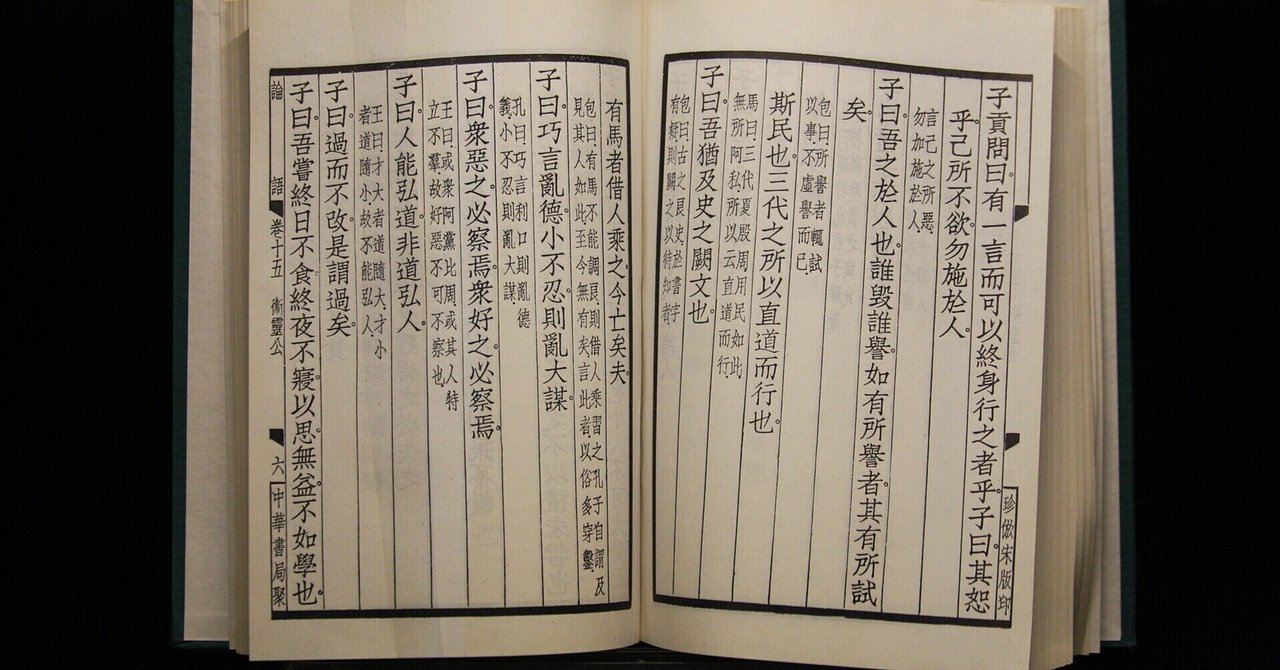 珍倣宋版印
子貢問曰。有一言而可以終身行之者乎。子曰。其恕
乎。己所不欲。勿施於人。
言己之所惡。
勿加施於人
子曰。吾之於人也。誰毀誰譽。如有所譽者。其有所試
矣。
包曰。所譽者輒試
以事。不虛譽而已
斯民也。三代之所以直道而行也。
馬曰。三代夏殷周用民如此
無所阿私。所以云直道而行。
子曰。吾猶及史之闕文也。
包曰。古之良史於書字
有疑則闕之以待知者
有馬者借人乘之。今亡矣夫。
包曰。有馬不能調良。則借人乘習之。孔子自謂及
見其人如此。至今無有矣。言此者。以俗多穿鑿。
子曰。巧言亂德。小不忍則亂大謀。
孔曰。巧言利口則亂德
義。小不忍則亂大謀
子曰。衆惡之。必察焉。衆好之。必察焉。
王曰。或衆阿黨比周。或其人特
立不羣。故好惡不可不察也。
子曰。人能弘道。非道弘人。
王曰。才大者道隨大。才小
者道隨小。故不能弘人。
子曰。過而不改。是謂過矣。
子曰。吾嘗終日不食。終夜不寢。以思。無益。不如學也。
論語 卷十五 衞靈公 六 中華書局聚